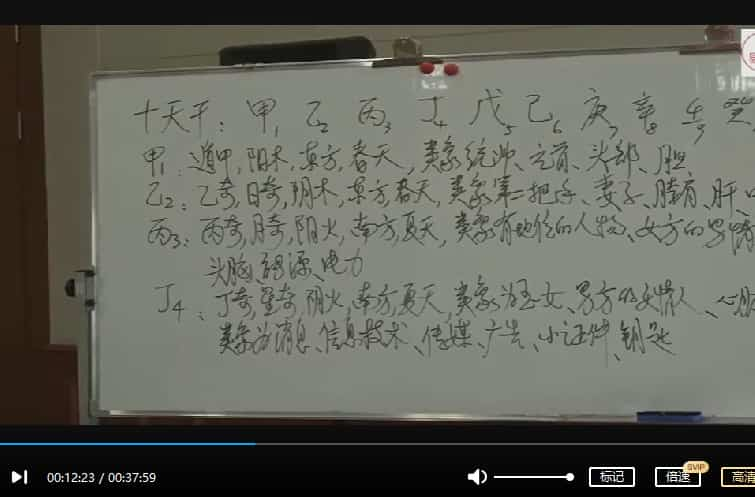 十天干：甲1 乙2 丙3 丁4 戊5 己6 庚7 辛8 壬9 癸
甲1：遁甲，阳木，东方，春天，类象统帅、元首、头部、胆
乙2：乙奇，日奇，阴木，东方，春天，类象第二把手、妻子、膵有、肝、
丙3：丙奇，月奇，阳火，南方，夏天，类象有地位的人物、女方的男情
头脑、能源、电力
丁4：丁奇，星奇，阴火，南方，夏天，类象为玉女、男方的女情人、心脏
类象为消息、信息技术、传媒、广告、小证件、钥匙
00:12:23 / 00:37:59 标记 倍速 SVIP 高清